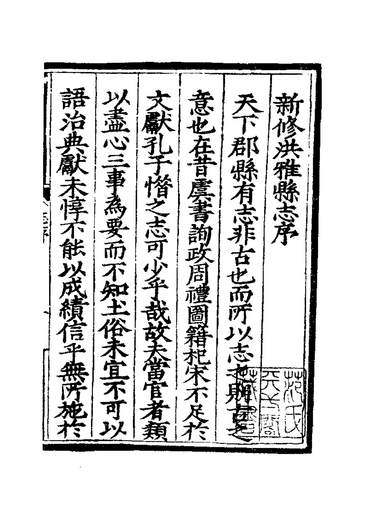 新修洪雅縣志序
天下郡縣有志非古也而所以志也則古之
意也在昔虞書詢政周禮圖籍杞宋不足於
文獻孔子惜之志可少乎哉故夫當官者類
以盡心三事為要而不知土俗未宜不可以
語治典獻未惇不能以成績信乎無所施於
范氏天一閣藏書